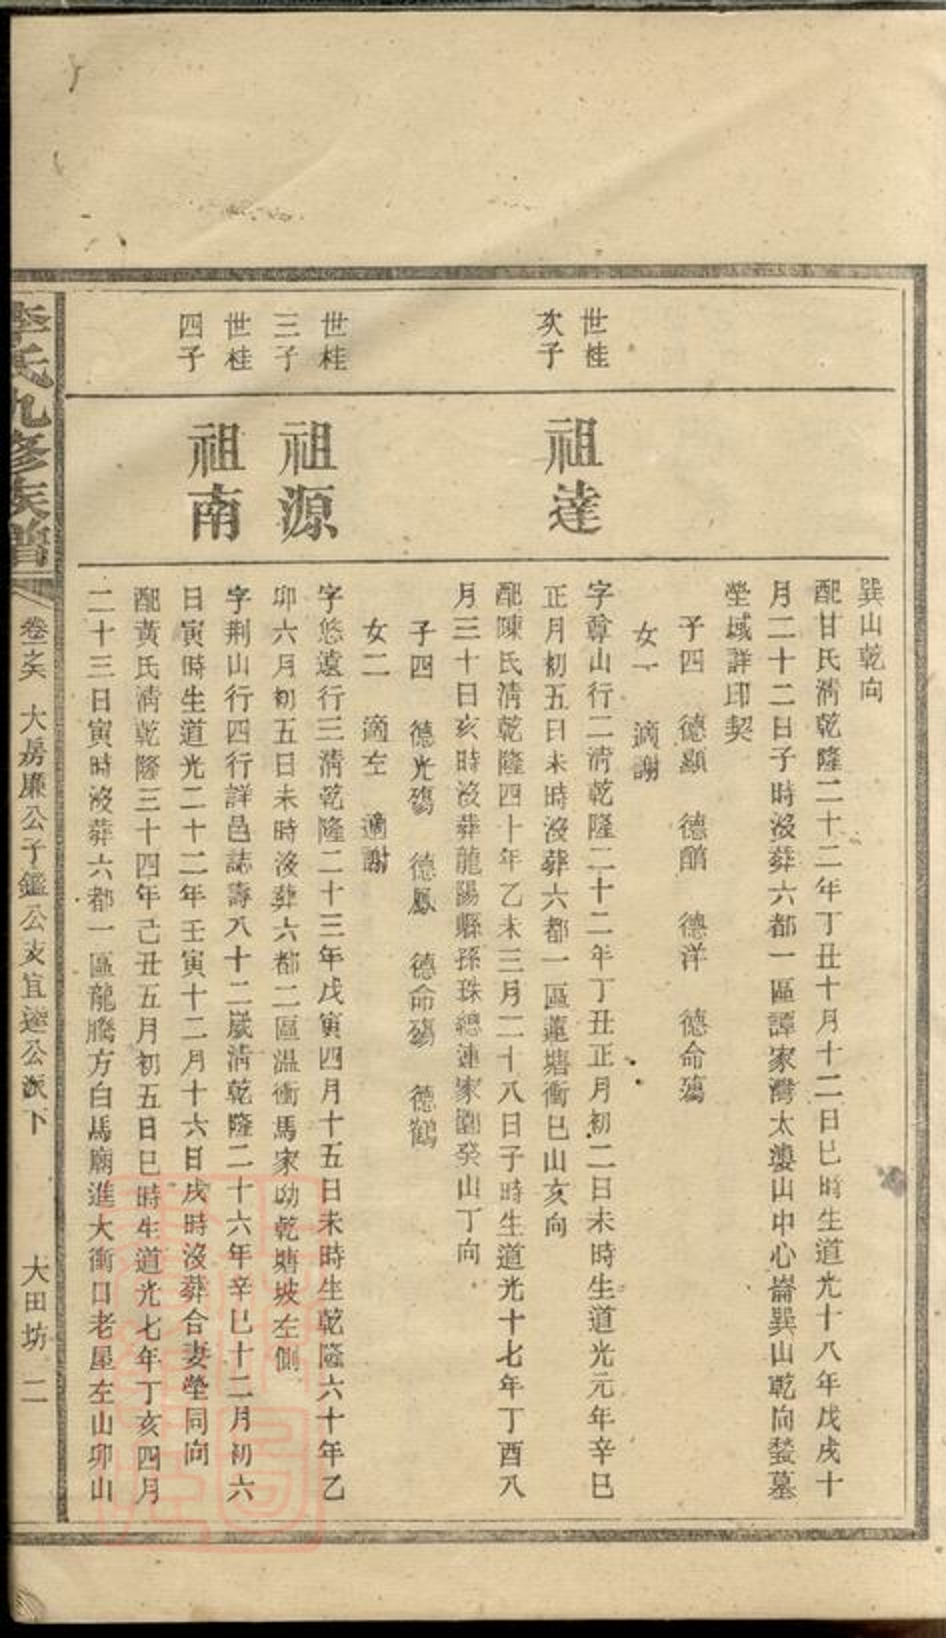 巽山乾向
配甘氏淸乾隆二十二年丁丑十月十二日巳時生道光十八年戊戌十
月二十二日子時沒葬六都一區譚家灣太婆山中心崙巽山乾向墓
塋域詳印契
子四 德顯 德 德洋 德命殤
女一 適謝
世桂
次子
祖達
字尊山行二淸乾隆二十二年丁丑正月初二日未時生道光元年辛巳
正月初五日未時沒葬六都一區蓮塘衝巳山亥向
配陳氏淸乾隆四十年乙未三月二十八日子時生道光十七年丁酉八
月三十日亥時沒葬龍陽縣孫珠總連家園癸山丁向
子四 德光殤 德鳳 德命殤 德鶴
女二 適左 適謝
世桂
三子
祖源
字悠遠行三淸乾隆二十三年戊寅四月十五日未時生乾隆六十年乙
卯六月初五日未時沒葬六都二區温衝馬家坳乾塘坡左側
世桂
四子
祖南
字荆山行四行詳邑誌壽八十二嵗淸乾隆二十六年辛巳十二月初六
日寅時生道光二十二年壬寅十二月十六日戌時沒葬合妻塋同向
配黃氏淸乾隆三十四年己丑五月初五日巳時生道光七年丁亥四月
二十三日寅時沒葬六都一區龍騰方白馬廟進大衝口老屋左山卯山
李氏九修族譜
卷之 大房廉公子鑑公支宜逵公派下 大田坊 二